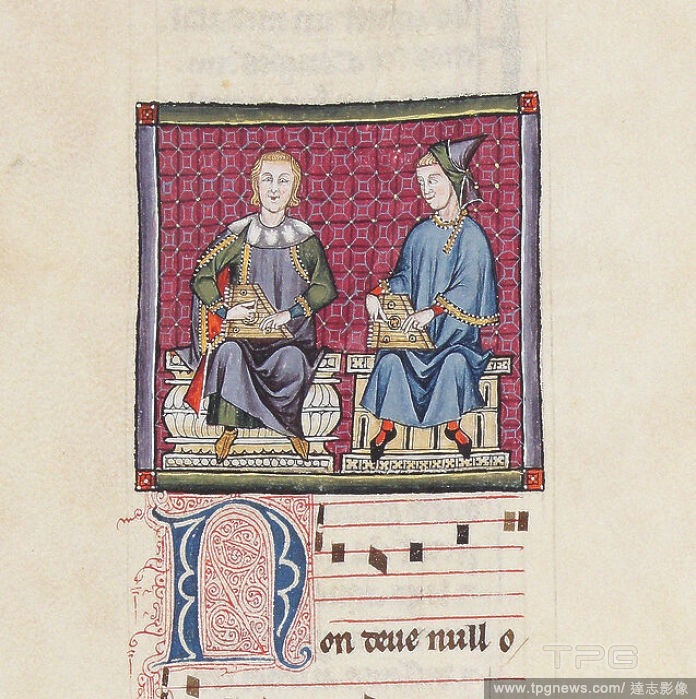 Non deue null o
TPG
www.tpgnews.com/ 達志影像